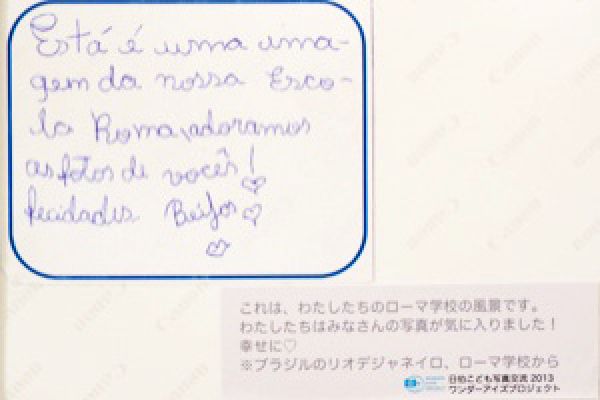 Está é uma ima-
gem da nossa Esco-
la Roma, adoramos
as fotos de vocês!
fecidades Beijos
これは、わたしたちのローマ学校の風景です。
わたしたちはみなさんの写真が気に入りました！
幸せに♡
※ブラジルのリオデジャネイロ、ローマ学校から
日伯こども写真交流 2013
ワンダーアイズプロジェクト